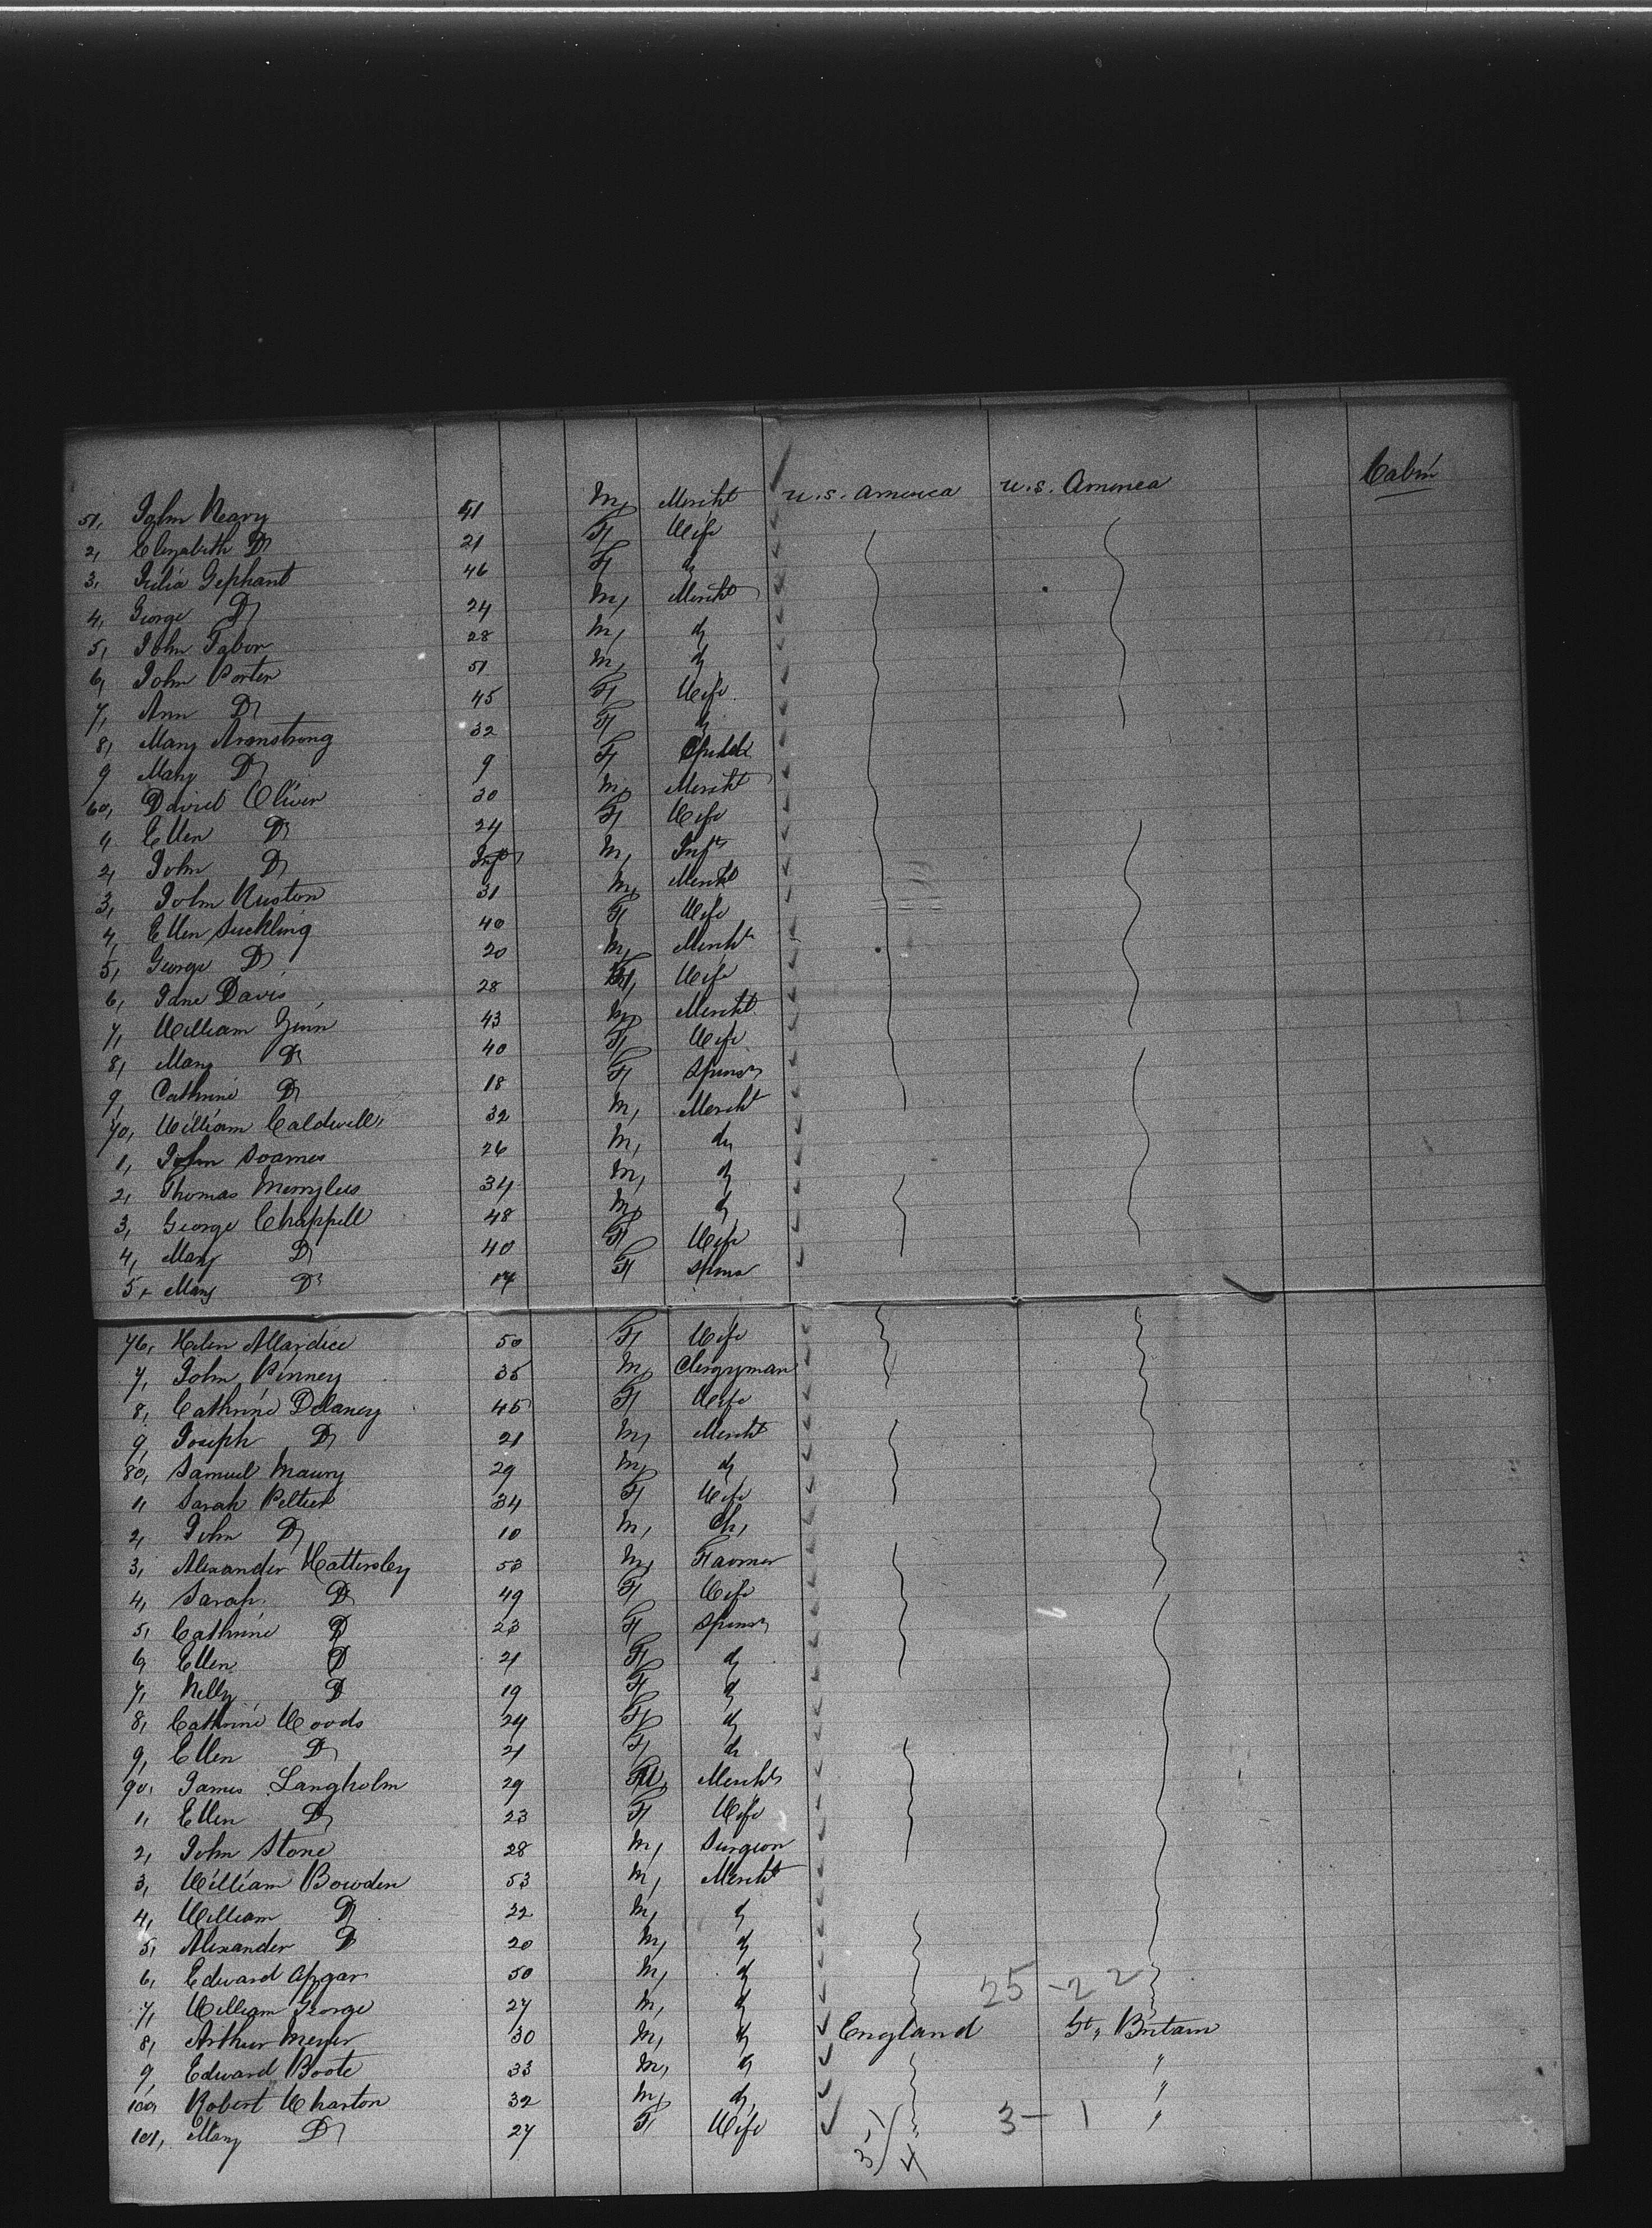 Cabin
51, John Neary 41 M, Mercht U.S. America U.S. America
2, Elizabeth Do 21 F, Wife
3, Julia Gephant 46 F, do
4, George Do 24 M, Mercht
5, John Tabor 28 M, do
6, John Porter 51 M, do
7, Ann Do 45 F, Wife
8, Mary Armstrong 32 F, do
9 Mary Do 9 F, Child
60, David Oliver 30 M, Mercht
1, Ellen Do 24 F, Wife
2, John Do Inft M, Inft
3, John Ruston 31 M, Mercht
4, Ellen Suckling 40 F, Wife
5, George Do 20 M, Mercht
6, Jane Davis 28 F, Wife
7, William Zinn 43 M, Mercht
8, Mary Do 40 F, Wife
9, Cathrine Do 18 F, Spinsr
70, William Caldwell, 32 M, Mercht
1, John Soames 26 M, do
2, Thomas Merrylees 34 M, do
3, George Chappell 48 M, do
4, Mary Do 40 F, Wife
5, Mary Do 17 F, Spinsr
76, Helen Allardice 50 F, Wife
7, John Pinney 35 M, Clergyman
8, Cathrine Delaney 45 F, Wife
9, Joseph Do 21 M, Mercht
80, Samuel Maury 29 M, do
1, Sarah Peltier 34 F, Wife
2, John Do 10 M, Ch,
3, Alexander Hattersley 53 M, Farmer
4, Sarah Do 49 F, Wife
5, Cathrine Do 23 F, Spinsr
6, Ellen Do 21 F, do
7, Nelly Do 19 F, do
8, Cathrine Woods 24 F, do
9, Ellen Do 21 F, do
90, James Langholm 29 M, Mercht
1, Ellen Do 23 F, Wife
2, John Stone 28 M, Surgeon
3, William Bowden 53 M, Mercht
4, William Do 22 M, do
5, Alexander Do 20 M, do
6, Edward Apgar 50 M, do
25-22
7, William George 27 M, do
8, Arthur Meyer 30 M, do England Gt, Britain
9, Edward Boote 33 M, do "
100, Robert Wharton 32 M, do "
101, Mary Do 27 F, Wife 3-1 "